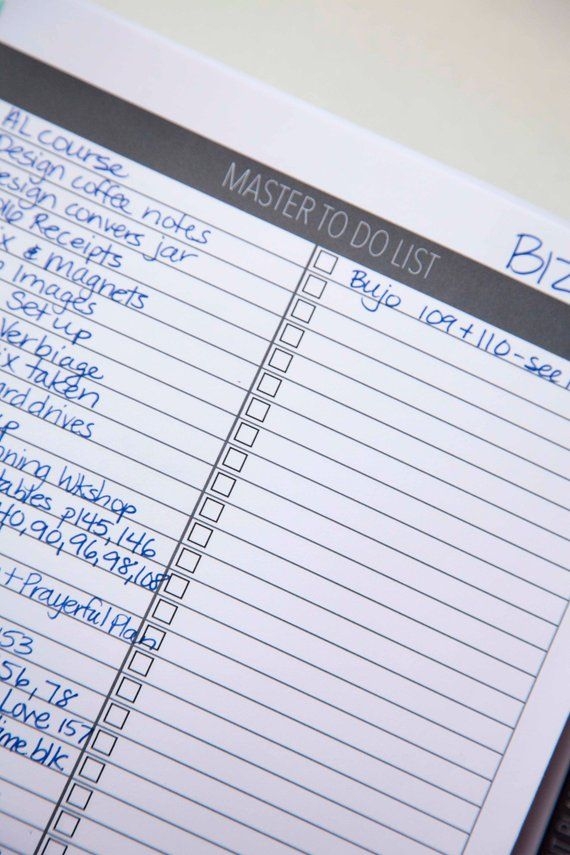 MASTER TO DO LIST
BIZ
AL COURSE
Design coffee notes
esign convers jar
Receipts
& magnets
Images
Set up
Verbiage
taken
ard drives
Wkshop
tables p145, 146
40, 90, 96, 98, 108
+ Prayerful Plan
153
56, 78
Love 157
ime blk
Bujo 109 + 110 - see